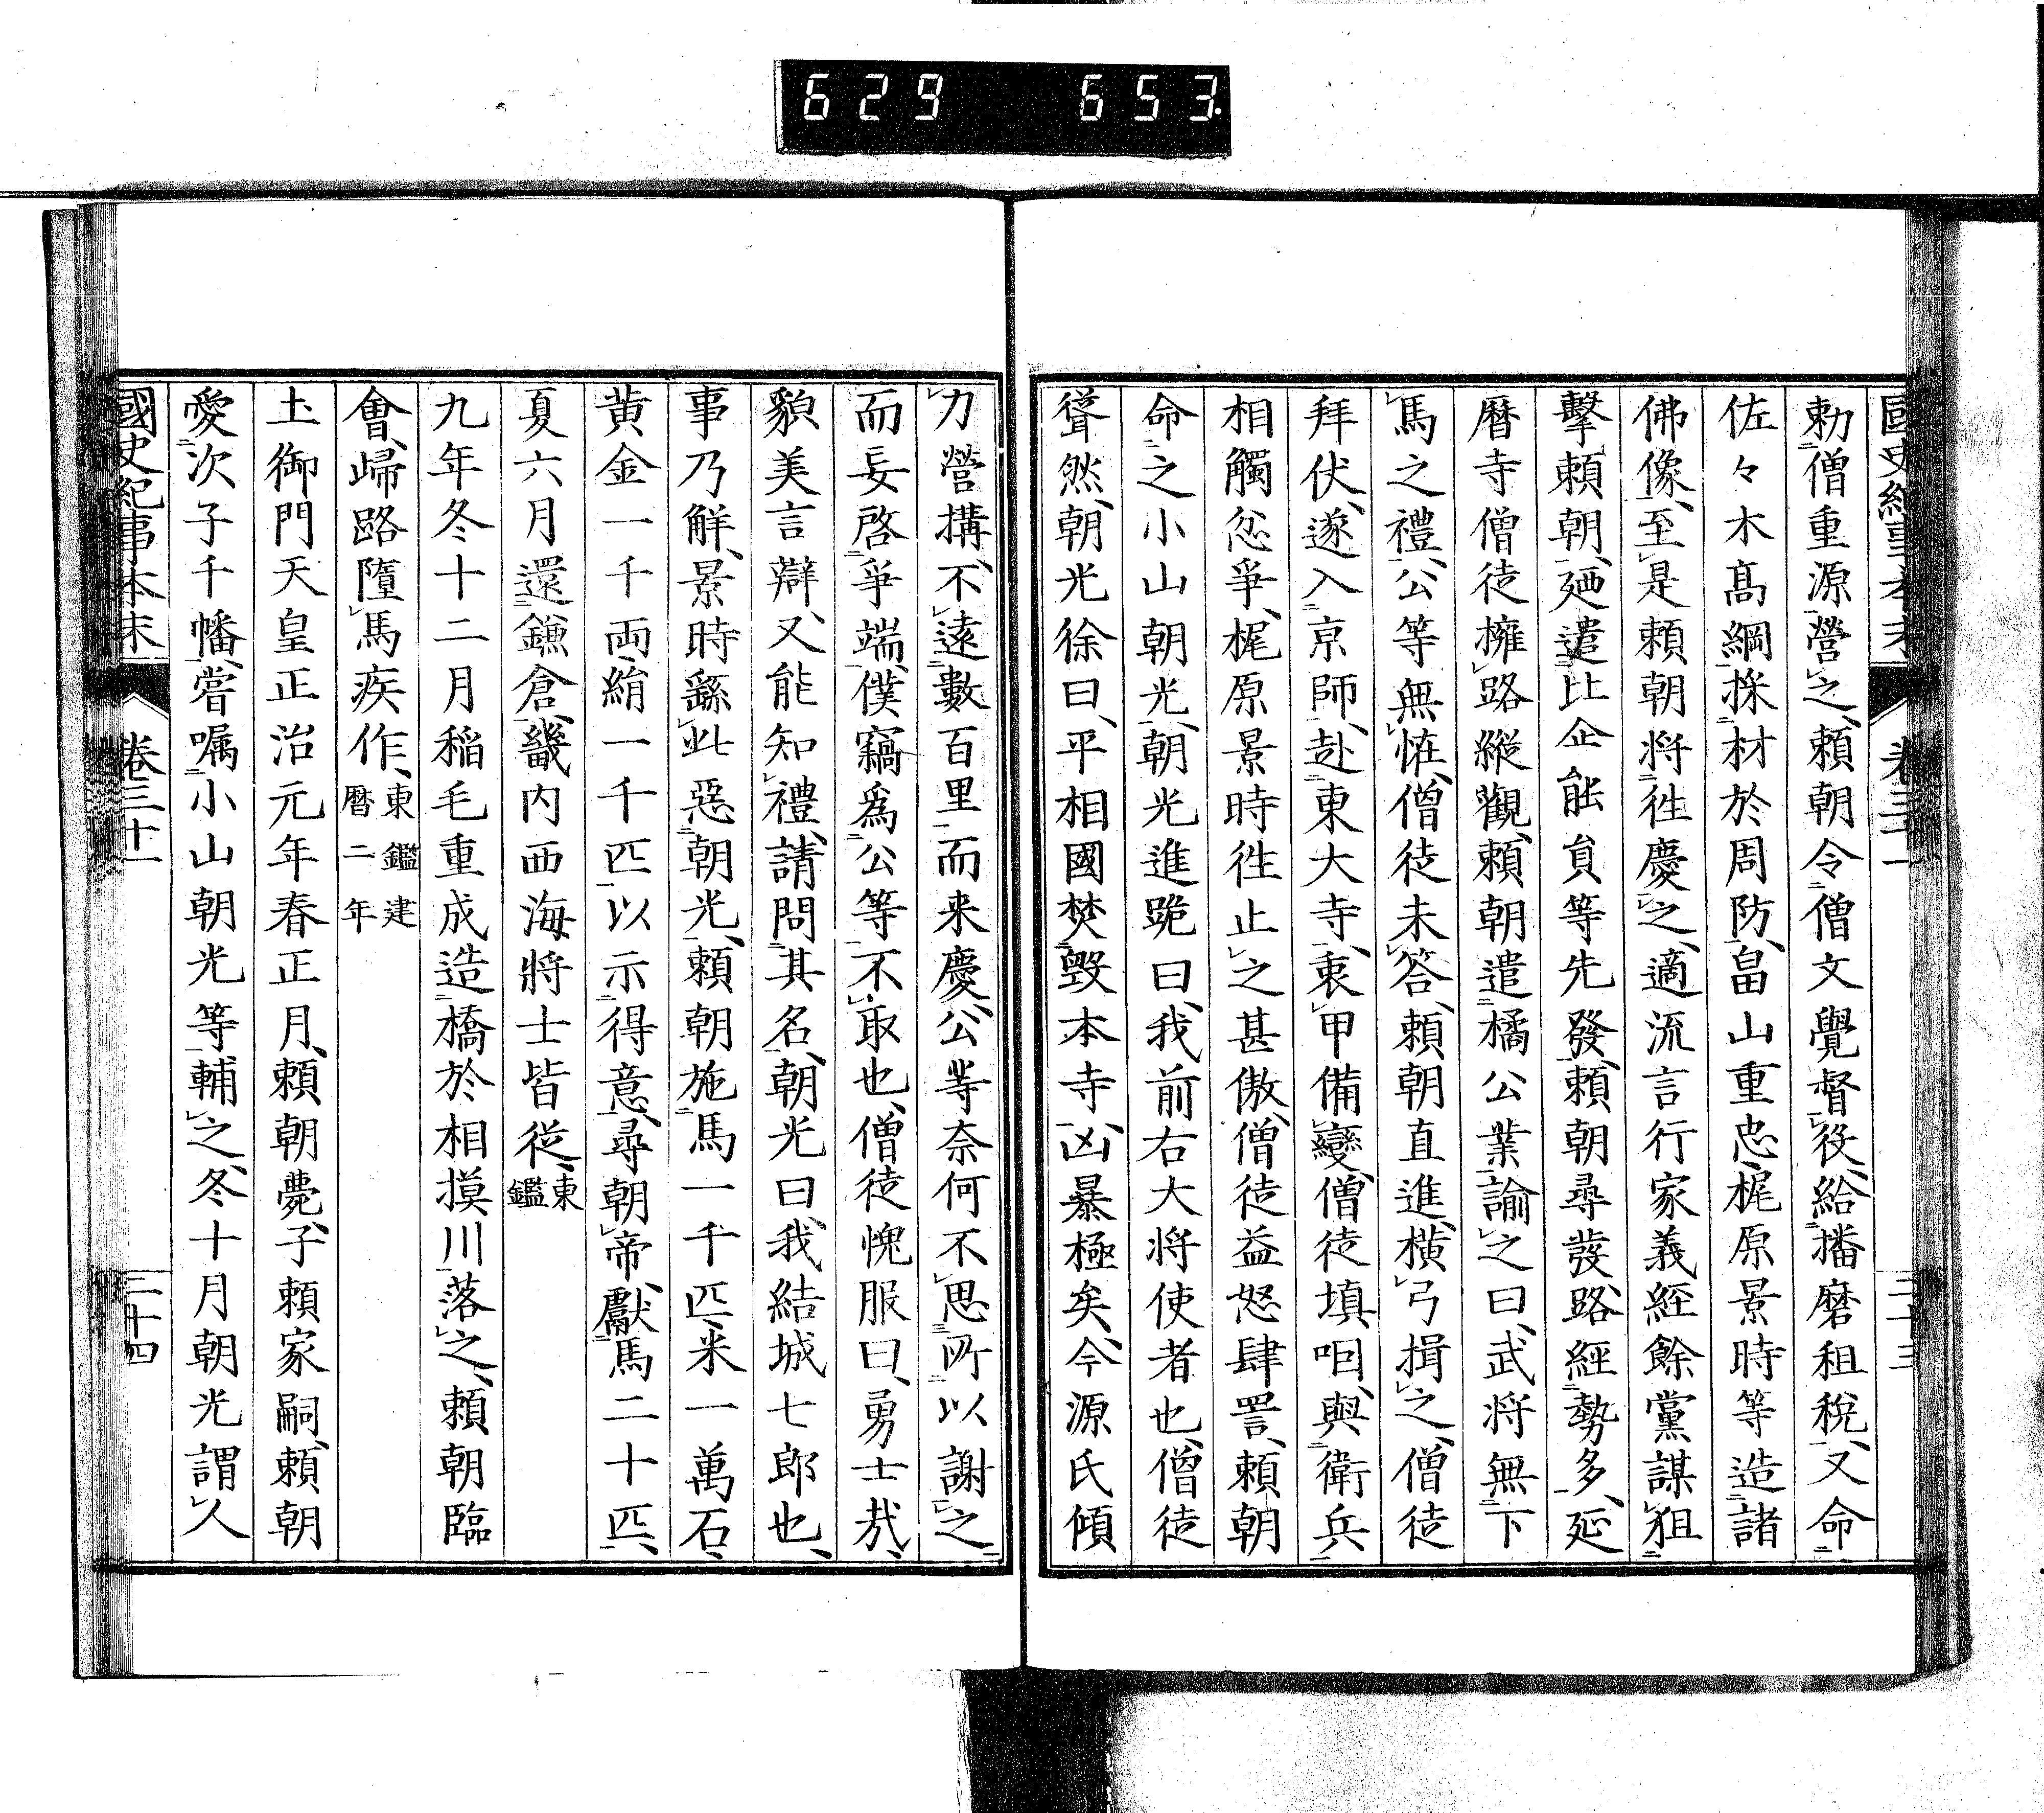 629 653.
國史紀事本末 卷三十一 二十三
勅僧重源營之、賴朝令僧文覺督役、給播磨租稅、又命
佐々木髙綱採材於周防、畠山重忠、梶原景時等造諸
佛像、至是賴朝將徃慶之、適流言行家義經餘黨謀狙
擊賴朝、廼遣比企能員等先發、賴朝尋發、路經勢多、延
曆寺僧徒擁路縱觀、賴朝遣橘公業諭之曰、武將無下
馬之禮、公等無恠、僧徒未答、賴朝直進、橫弓揖之、僧徒
拜伏、遂入京師、赴東大寺、衷甲備變、僧徒填咽、與衛兵
相觸忿爭、梶原景時徃止之甚傲、僧徒益怒肆詈、賴朝
命之小山朝光、朝光進跪曰、我前右大將使者也、僧徒
聳然、朝光徐曰、平相國焚毀本寺、凶暴極矣、今源氏傾
力營搆、不遠數百里而来慶、公等奈何不思所以謝之
而妄啓爭端、僕竊爲公等不取也、僧徒愧服曰、勇士哉、
貌美言辯、又能知禮、請問其名、朝光曰、我結城七郎也、
事乃解、景時繇此惡朝光、賴朝施馬一千匹、米一萬石、
黃金一千兩、絹一千匹、以示得意、尋朝帝、獻馬二十匹、
夏六月還鎌倉、畿内西海將士皆從、東鑑
九年冬十二月稲毛重成造橋於相摸川落之、賴朝臨
會、歸路墮馬疾作、東鑑建曆二年
土御門天皇正治元年春正月、賴朝薨、子賴家嗣、賴朝
愛次子千幡、嘗嘱小山朝光等輔之、冬十月朝光謂人
國史紀事本末 卷三十一 二十四